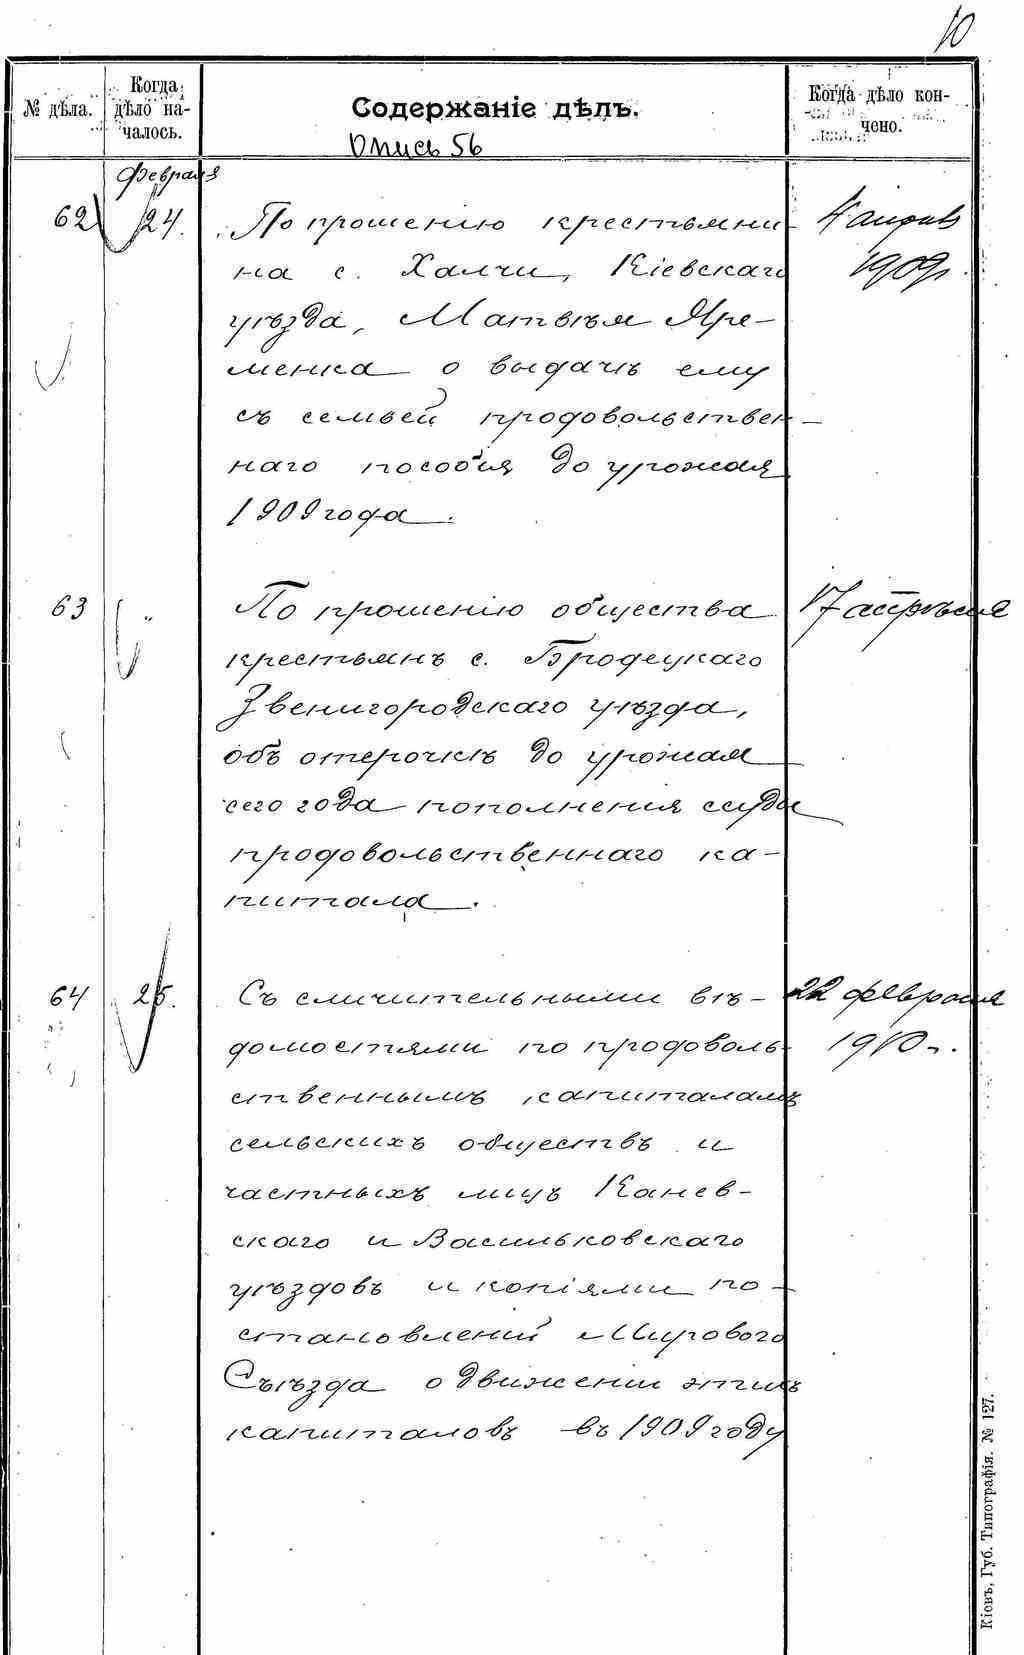 10
№ дѣла.
Когда
дѣло на-
чалось.
Содержаніе дѣлъ.
Опись 56
Когда дѣло кон-
чено.
Февраля
62 24. По прошенію крестьяни-
на с. Халчи, Кіевскаго
уѣзда, Матвѣя Яре-
менка о выдачѣ ему
съ семьей продовольствен-
наго пособія до урожая
1909 года.
1909 г.
63 " По прошенію общества 17 апрѣля
крестьянъ с. Бродецкаго
Звенигородскаго уѣзда,
объ отсрочкѣ до урожая
сего года пополнения ссуды
продовольственнаго ка-
питала.
64 25. Съ сличительными вѣ- 22 февраля
домостями по продоволь- 1910 г.
ственнымъ капиталамъ
сельскихъ обществъ и
частныхъ лицъ Канев-
скаго и Васильковскаго
уѣздовъ и копіями по-
становленій Мирового
Съѣзда о движении этихъ
капиталовъ въ 1909 году
Кіевъ, Губ. Типографія. № 127.